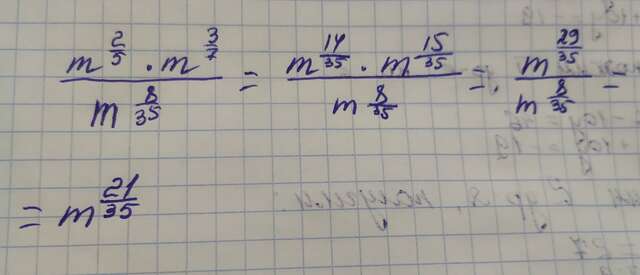 m^{2/5} · m^{3/7} / m^{8/35} = m^{14/35} · m^{15/35} / m^{8/35} = m^{29/35} / m^{8/35} =
= m^{21/35}